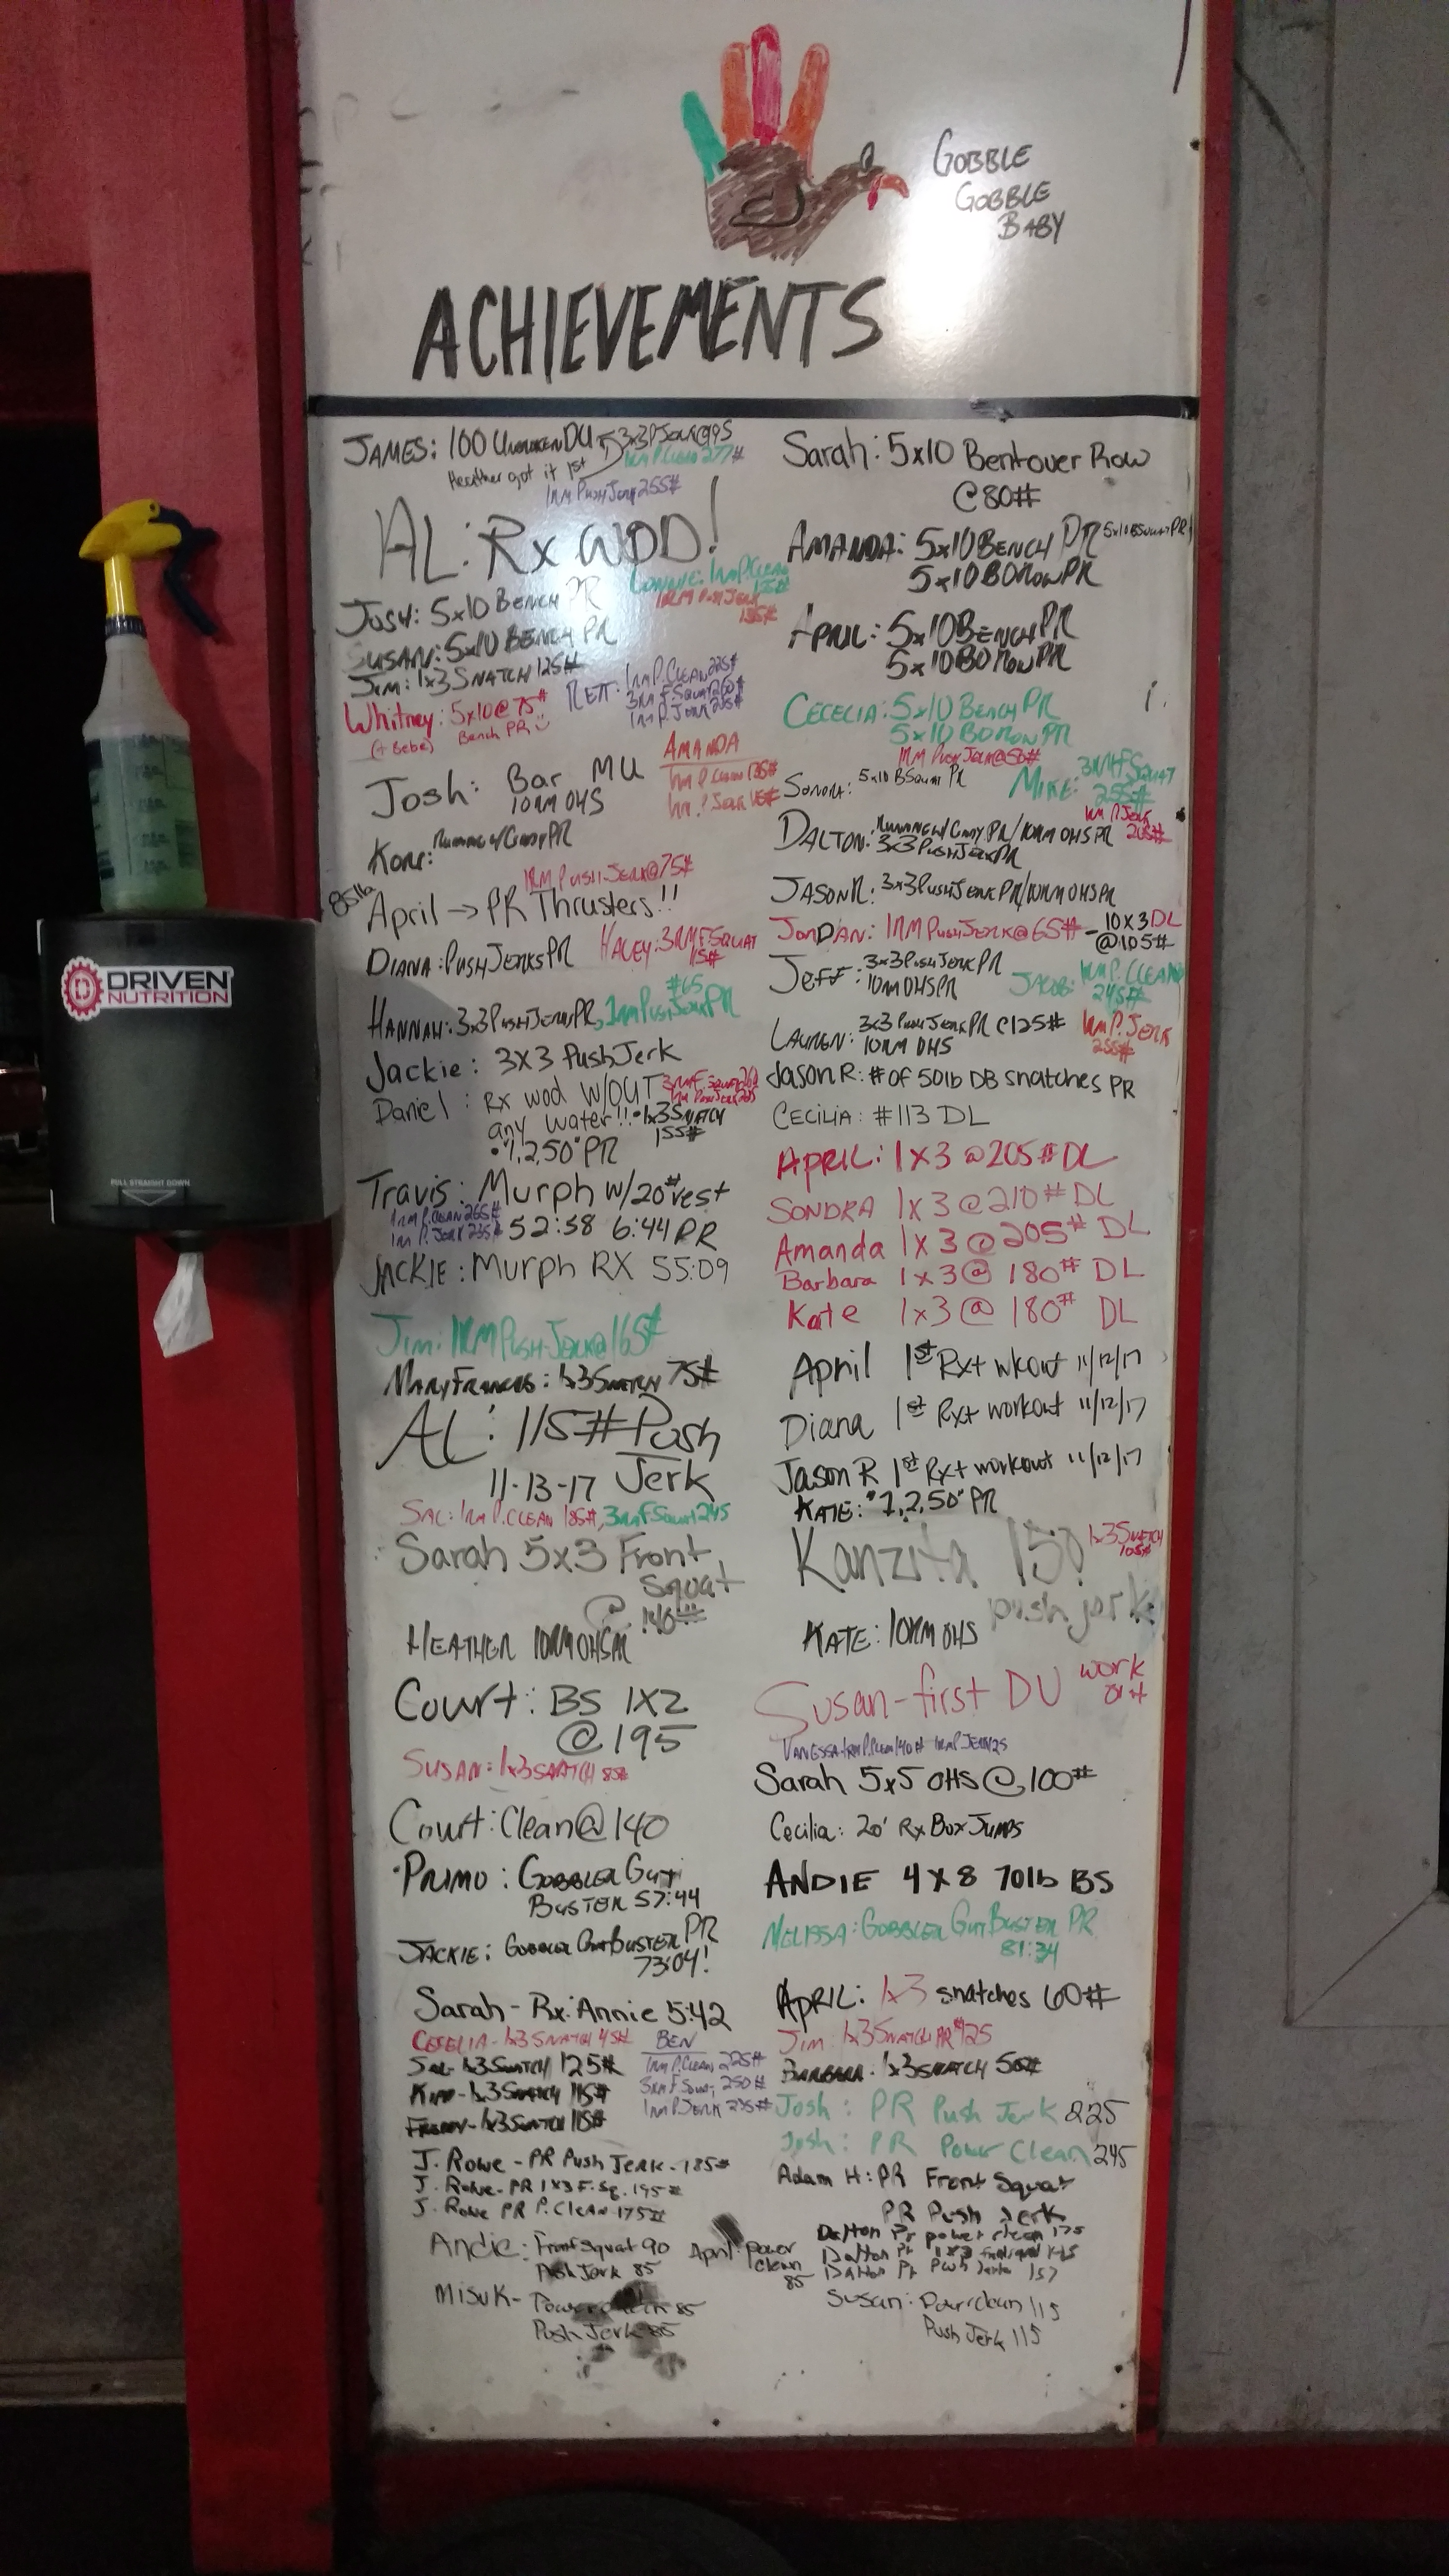 GOBBLE
GOBBLE
BABY
ACHIEVEMENTS
JAMES: 100 UNBROKEN DU
Heather got it 1st
1RM P.Clean 277#
1RM Push Jerk 255#
AL: Rx WOD!
1RM P.Clean
1RM Push Jerk
JOSH: 5x10 BENCH PR
SUSAN: 5x10 BENCH PR
JIM: 1x3 SNATCH 125#
Whitney: 5x10 @ 75#
(+ Bebe) Bench PR
RETT: 1RM P.CLEAN 225#
3RM F.SQUAT 260#
1RM P.JERK 205#
Josh: Bar MU
10RM OHS
AMANDA
1RM P.Clean 135#
1RM P.Jerk
1RM PUSH-JERK@75#
85lb
April → PR Thrusters!!
DIANA: PUSH JERKS PR
HALEY: 3RM F.SQUAT
115#
HANNAH: 3x3 PUSH JERK PR, 1RM Push Jerk PR
#65
Jackie: 3X3 Push Jerk
Daniel: Rx wod W/OUT
any water!! • 1x3 SNATCH
155#
• "1,2,50" PR
Travis: Murph w/20# vest
1RM P.CLEAN 265#
1RM P.JERK 235#
52:38 6:44 PR
JACKIE: Murph RX 55:09
Jim: 1RM PUSH-JERK@165#
MARY FRANCES: 1x3 SNATCH 75#
AL: 115# Push
Jerk
11-13-17
SAL: 1RM P.CLEAN 185#, 3RM F SQUAT 245
Sarah 5x3 Front
Squat
@ 140#
HEATHER 10RM OHS PR
Court: BS 1X2
@195
SUSAN: 1x3 SNATCH 85#
Court: Clean@140
PRIMO: GOBBLER GUT
BUSTER 57:44
JACKIE: GOBBLER GUT BUSTER PR
73:04!
Sarah - Rx: Annie 5:42
CECELIA - 1x3 SNATCH 45#
SAL - 1x3 SNATCH 125#
1x3 SNATCH 115#
1x3 SNATCH 115#
BEN
1RM P.CLEAN 225#
3RM F SQUAT 250#
1RM P.JERK 235#
J. Rowe - PR Push Jerk - 185#
J. Rowe - PR 1x3 F. Sq. 195#
J. Rowe PR P. Clean 175#
Andie: Front squat 90
Push Jerk 85
April: power
clean
85
Misuk - Power clean 85
Push Jerk 85
Sarah: 5x10 Bentover Row
@80#
AMANDA: 5x10 BENCH PR 5x10 BSQUAT PR
5x10 BO ROW PR
APRIL: 5x10 BENCH PR
5x10 BO ROW PR
CECELIA: 5x10 BENCH PR
5x10 BO ROW PR
1RM Push Jerk@80#
SONDRA: 5x10 BSquat PR
MIKE: 3RM F Squat
255#
DALTON: 10RM OHS PR
3x3 PUSH JERK PR
1RM P.Jerk
205#
JASON R: 3x3 PUSH JERK PR/10RM OHS PR
JORDAN: 1RM PUSH JERK@65# - 10X3 DL
@105#
JEFF: 3x3 PUSH JERK PR
10RM OHS PR
JACOB: 1RM P.CLEAN
245#
1RM P.JERK
255#
LAUREN: 3x3 PUSH JERK PR @125#
10RM OHS
Jason R: # of 50lb DB snatches PR
CECILIA: #113 DL
APRIL: 1x3 @205# DL
SONDRA 1x3 @210# DL
Amanda 1x3 @205# DL
Barbara 1x3@ 180# DL
Kate 1x3@ 180# DL
April 1st Rx+ wkout 11/12/17
Diana 1st Rx+ workout 11/12/17
Jason R 1st Rx+ workout 11/12/17
KATE: "1,2,50" PR
1x3 SNATCH
105#
Kanzita 150
push jerk
KATE: 10RM OHS
Susan - first DU work
out
VANESSA - 1RM P.Clean 140# 1RM P.JERK 125
Sarah 5x5 OHS @ 100#
Cecilia: 20' Rx Box Jumps
ANDIE 4X8 70lb BS
MELISSA: GOBBLER GUT BUSTER PR
81:34
APRIL: 1x3 snatches 60#
Jim: 1x3 SNATCH PR #125
BARBARA: 1x3 SNATCH 50#
Josh: PR Push Jerk 225
Josh: PR Power Clean 245
Adam H: PR Front Squat
PR Push Jerk
Dalton Pr power clean 175
Dalton Pr 1x3 front squat
Dalton Pr Push Jerk 157
Susan: Power clean 115
Push Jerk 115
DRIVEN
NUTRITION
PULL STRAIGHT DOWN